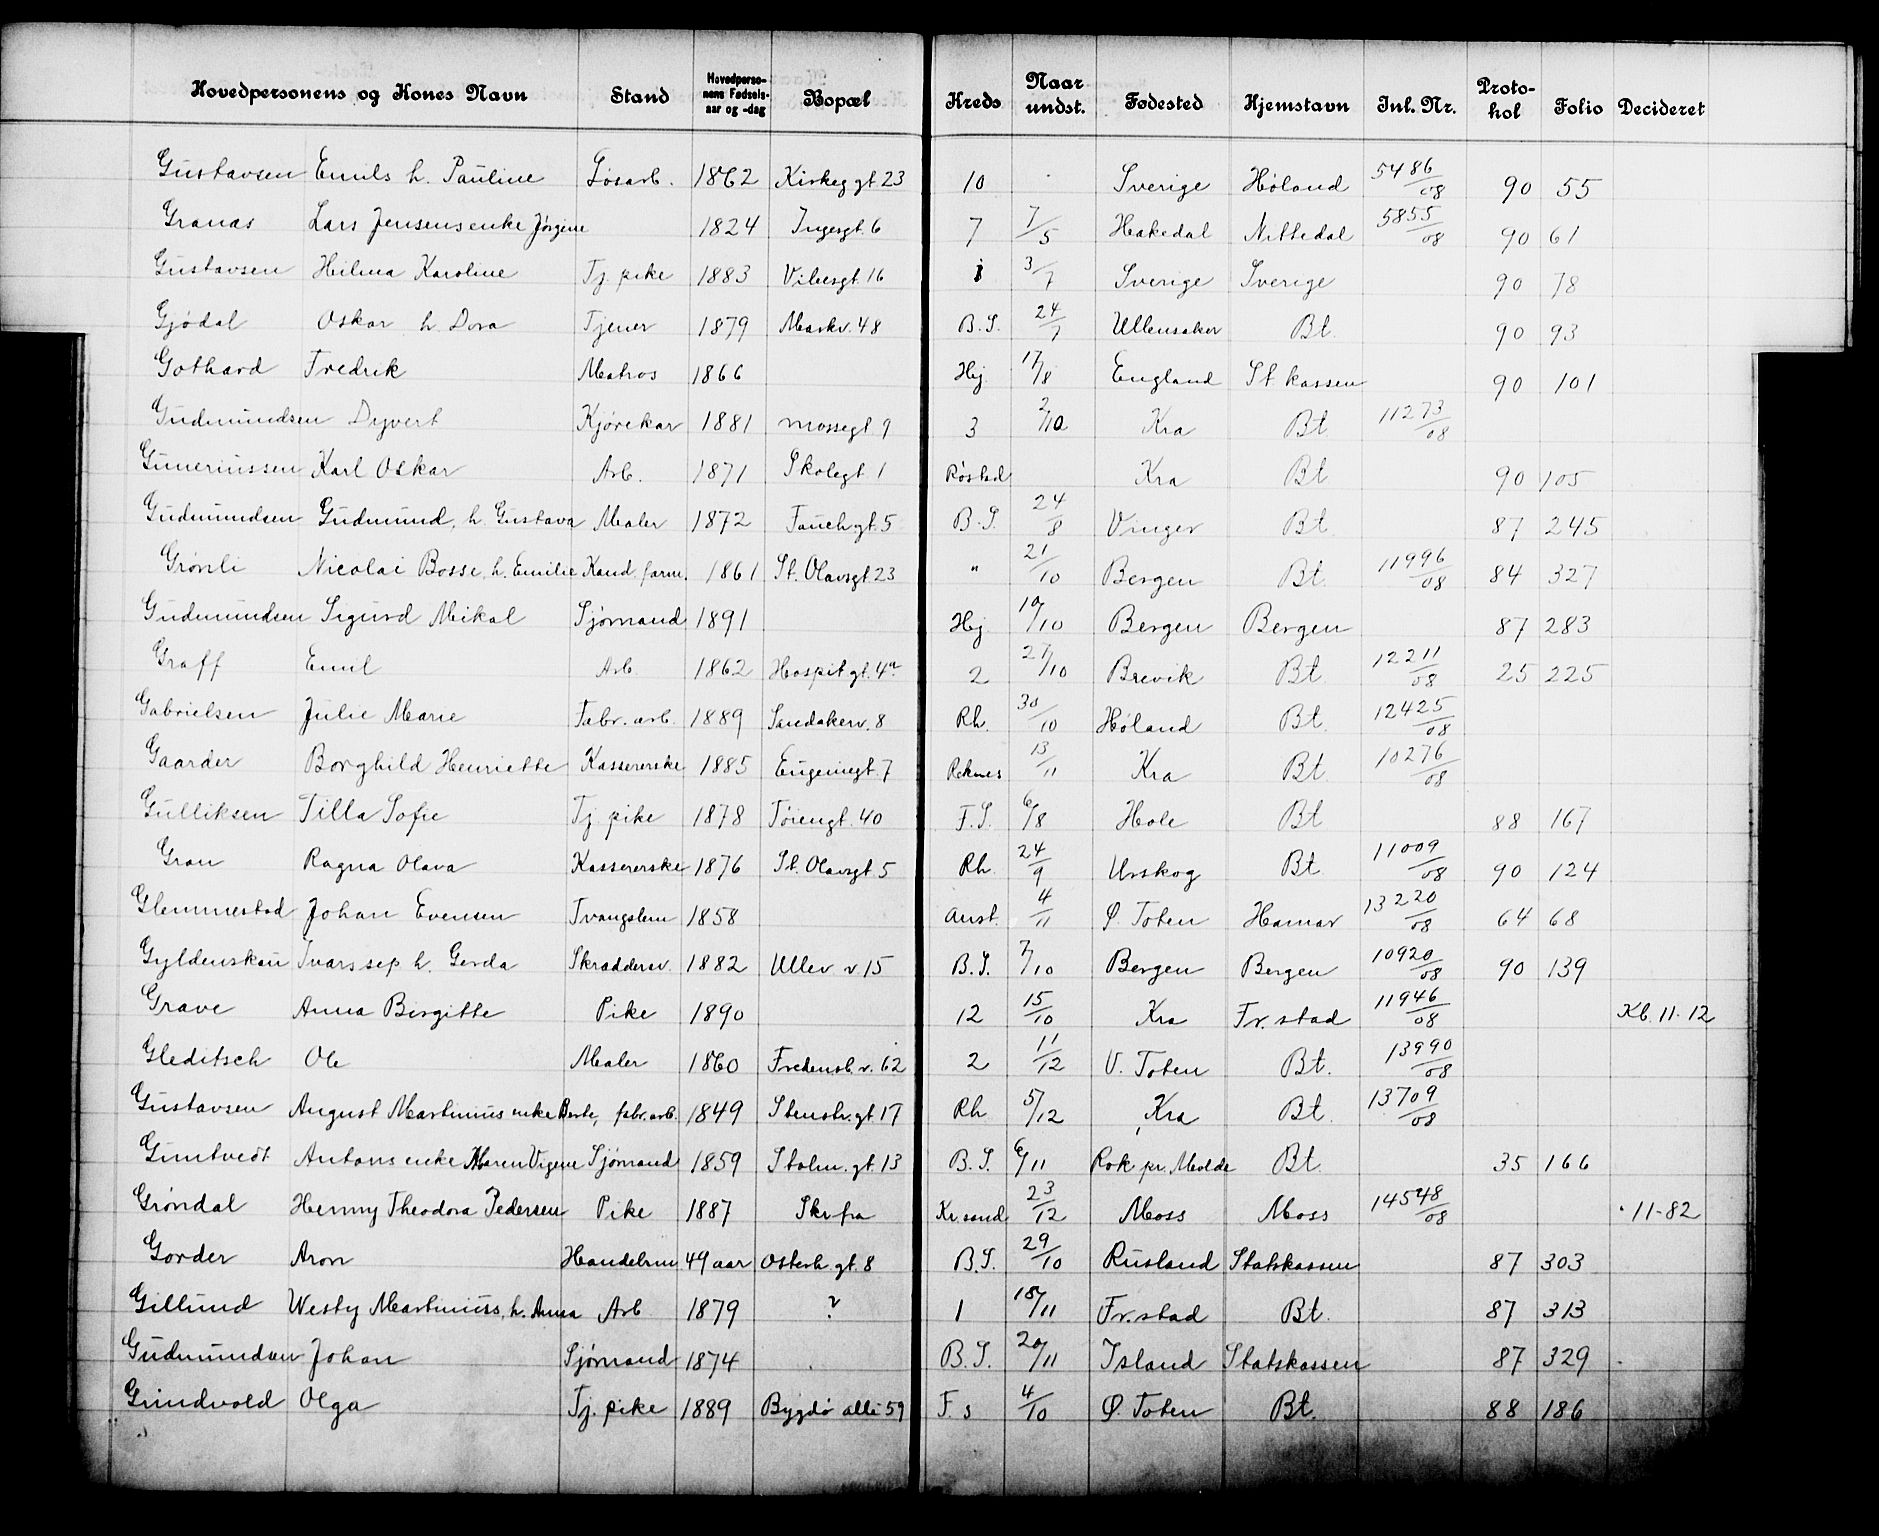 Hovedpersonens og Kones Navn | Stand | Hovedpersonens Fødselsaar og -dag | Bopæl | Kreds | Naar undst. | Fødested | Hjemstavn | Inl. Nr. | Protokol | Folio | Decideret
Gustavsen Emils h. Pauline | Løsarb. | 1862 | Kirkeg gt 23 | 10 | Sverige | Høland | 5486/08 | 90 | 55
Granas Lars Jensens enke Jørgine | 1824 | Ingesgt 6 | 7 | 7/5 | Hakedal | Nittedal | 5855/08 | 90 | 61
Gustavsen Hilma Karoline | Tj. pike | 1883 | Vibesgt. 16 | 3/7 | Sverige | Sverige | 90 | 78
Gjødal Oskar h. Dora | Tjener | 1879 | Markv. 48 | B.S. | 24/7 | Ullensaker | Bt. | 90 | 93
Gothard Fredrik | Matros | 1866 | Hj | 17/8 | England | St. kassen | 90 | 101
Gudmundsen Dyvert | Kjørekar | 1881 | Mossegt 9 | 3 | 2/10 | Kra | Bt | 11273/08
Guneriussen Karl Oskar | Arb. | 1871 | Skolegt 1 | Røstad | Kra | Bt | 90 | 105
Gudmundsen Gudmund, h. Gustava | Maler | 1872 | Fauch gt. 5 | B.S. | 24/8 | Vinger | Bt. | 87 | 245
Grønli Nicolai Bosse, h. Emilie | Kand. farm. | 1861 | St. Olavsgt. 23 | " | 21/10 | Bergen | Bt. | 11996/08 | 84 | 327
Gudmundsen Sigurd Mikal | Sjømand | 1891 | Hj | 10/10 | Bergen | Bergen | 87 | 283
Graff Emil | Arb. | 1862 | Hospit gt. 4a | 2 | 27/10 | Brevik | Bt. | 12211/08 | 25 | 225
Gabrielsen Julie Marie | Fabr. arb. | 1889 | Sandakerv. 8 | Rh. | 30/10 | Høland | Bt. | 12425/08
Gaarder Borghild Henriette | Kassererske | 1885 | Eugeniegt. 7 | Reknes | 13/11 | Kra | Bt | 10276/08
Gulliksen Tilla Sofie | Tj. pike | 1878 | Tøiengt. 40 | F.S. | 6/8 | Hole | Bt | 88 | 167
Gran Ragna Olava | Kassererske | 1876 | St. Olavsgt. 5 | Rh. | 24/9 | Urskog | Bt. | 11009/08 | 90 | 124
Glemmestad Johan Evensen | Tvangslem | 1858 | Anst. | 4/11 | Ø. Toten | Hamar | 13220/08 | 64 | 68
Gyldenskau Ivars sep h. Gerda | Skradderv. | 1882 | Ullev. v. 15 | B.S. | 7/10 | Bergen | Bergen | 10920/08 | 90 | 139
Grave Anna Birgitte | Pike | 1890 | 12 | 15/10 | Kra | Fr. stad | 11946/08 | Kb. 11-12
Gleditsch Ole | Maler | 1860 | Fredensb. v. 62 | 2 | 11/12 | V. Toten | Bt. | 13990/08
Gustavsen August Martinius enke Berte, fabr. arb. | 1849 | Stenstr. gt. 17 | Rh. | 5/12 | Kra | Bt. | 13709/08
Guntvedt Antons enke Maren Vigene | Sjømand | 1859 | Stolm. gt. 13 | B.S. | 6/11 | Rok pr. Molde | Bt. | 35 | 166
Grøndal Henny Theodora Pedersen | Pike | 1887 | Skr fra | Kr.sand | 23/12 | Moss | Moss | 14548/08 | 11-82
Gorder Aron | Handelsm | 49 aar | Osterh. gt. 8 | B.S. | 29/10 | Rusland | Statskassen | 87 | 303
Gillund Westy Martinius, h. Anna | Arb | 1879 | ? | 1 | 18/11 | Fr. stad | Bt. | 87 | 313
Gudmundsen Johan | Sjømand | 1874 | B.S. | 20/11 | Island | Statskassen | 87 | 329
Grindvold Olga | Tj. pike | 1889 | Bygdø alle 59 | F.s | 4/10 | Ø. Toten | Bt. | 88 | 186